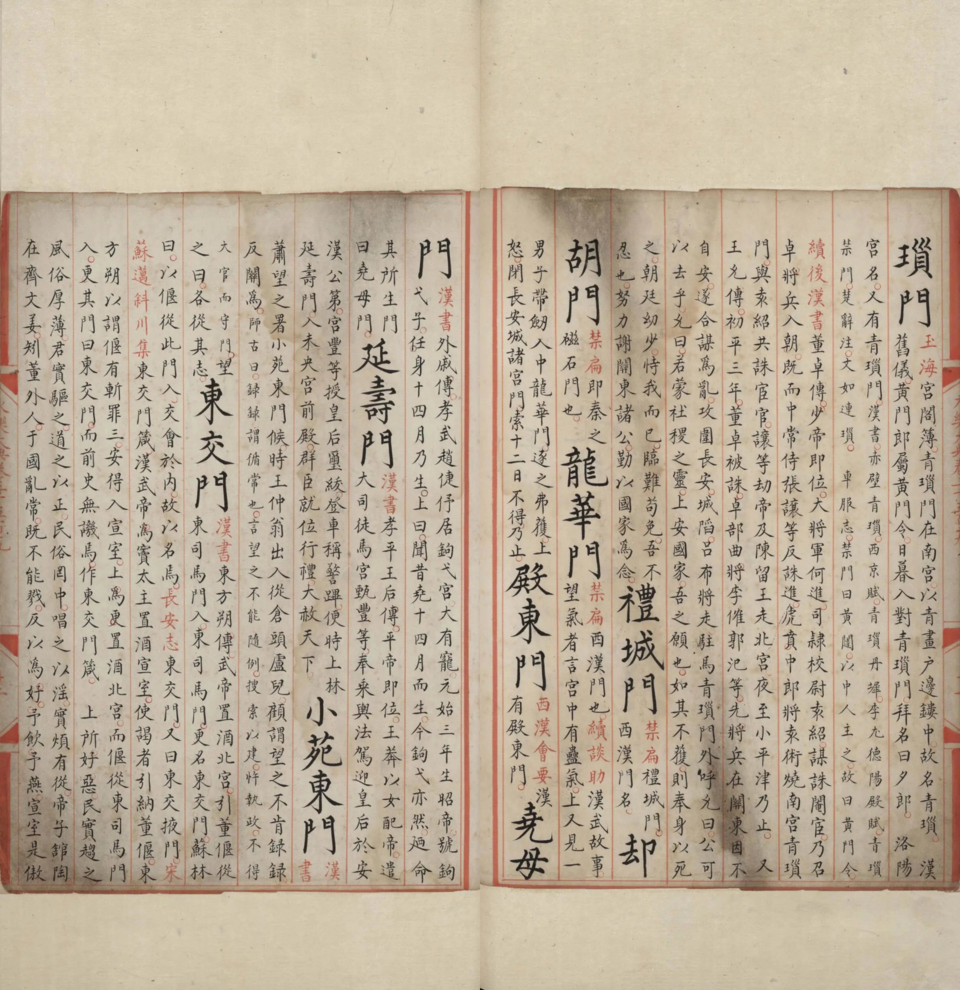 瑣門
玉海宮閣簿青瑣門在南宮以青畫戶邊鏤中故名青瑣 漢
舊儀黃門郎屬黃門令日暮入對青瑣門拜名曰夕郎 洛陽
宮名又有青瑣門漢書赤墀青瑣西京賦青瑣丹墀李尤德陽殿賦青瑣
禁門楚辭注文如連瑣 卑服志禁門曰黃闥以中人主之故曰黃門令
續後漢書董卓傳少帝即位大將軍何進司隸校尉袁紹謀誅閹宦乃召
卓將兵入朝既而中常侍張讓等反誅進虎賁中郎將袁術燒南宮青瑣
門與袁紹共誅宦官讓等劫帝及陳留王走北宮夜至小平津乃止 又
王允傳初平三年董卓被誅卓部曲將李傕郭汜等先將兵在關東因不
自安遂合謀爲亂攻圍長安城陷呂布將走駐馬青瑣門外呼允曰公可
以去乎允曰若蒙社稷之靈上安國家吾之願也如其不獲則奉身以死
之朝廷幼少恃我而已臨難苟免吾不
忍也努力謝關東諸公勤以國家爲念
禮城門
禁扁禮城門
西漢門名
却
胡門
禁扁即秦之
磁石門也
龍華門
禁扁西漢門也續談助漢武故事
望氣者言宮中有蠱氣上又見一
男子帶劒入中龍華門逐之弗獲上
怒閉長安城諸宮門索十二日不得乃止
殿東門
西漢會要漢
有殿東門
堯母
門
漢書外戚傳孝武趙倢伃居鉤弋宮大有寵元始三年生昭帝號鉤
弋子任身十四月乃生上曰聞昔堯十四月而生今鉤弋亦然廼命
其所生門
曰堯母門
延壽門
漢書孝平王后傳平帝即位王莽以女配帝遣
大司徒馬宮甄豐等奉乘輿法駕迎皇后於安
漢公第宮豐等授皇后璽紱登車稱警蹕便時上林
延壽門入未央宮前殿群臣就位行禮大赦天下
小苑東門
漢
書
蕭望之署小苑東門候時王仲翁出入從倉頭盧兒顧謂望之不肯録録
反關爲師古曰録録謂循常也言望之不能隨例搜索以建忤執政不得
大官而守門望
之曰各從其志
東交門
漢書東方朔傳武帝置酒北宮引董偃從
東司馬門入東司馬門更名東交門蘇林
曰以偃從此門入交會於内故以名焉長安志東交門又曰東交掖門宋
蘇邁斜川集東交門箴漢武帝爲竇太主置酒宣室使謁者引納董偃東
方朔以謂偃有斬罪三安得入宣室上爲更置酒北宮而偃從東司馬門
入更其門曰東交門而前史無譏焉作東交門箴 上所好惡民實趨之
風俗厚薄君實驅之道之以正民俗罔中唱之以滛實煩有從帝子舘陶
在齊文姜矧董外人于國亂常既不能戮反以爲好予飲予燕宣室是傲